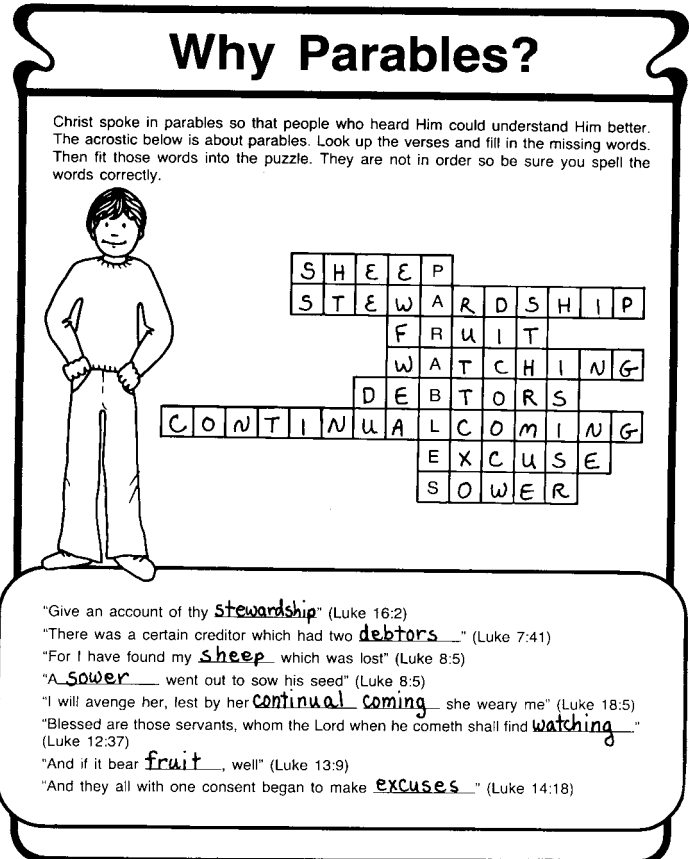 Why Parables?
Christ spoke in parables so that people who heard Him could understand Him better.
The acrostic below is about parables. Look up the verses and fill in the missing words.
Then fit those words into the puzzle. They are not in order so be sure you spell the
words correctly.
SHEEP
STEWARDSHIP
FRUIT
WATCHING
DEBTORS
CONTINUALCOMING
EXCUSE
SOWER
"Give an account of thy stewardship" (Luke 16:2)
"There was a certain creditor which had two debtors " (Luke 7:41)
"For I have found my sheep which was lost" (Luke 8:5)
"A sower went out to sow his seed" (Luke 8:5)
"I will avenge her, lest by her continual coming she weary me" (Luke 18:5)
"Blessed are those servants, whom the Lord when he cometh shall find watching ."
(Luke 12:37)
"And if it bear fruit , well" (Luke 13:9)
"And they all with one consent began to make excuses " (Luke 14:18)